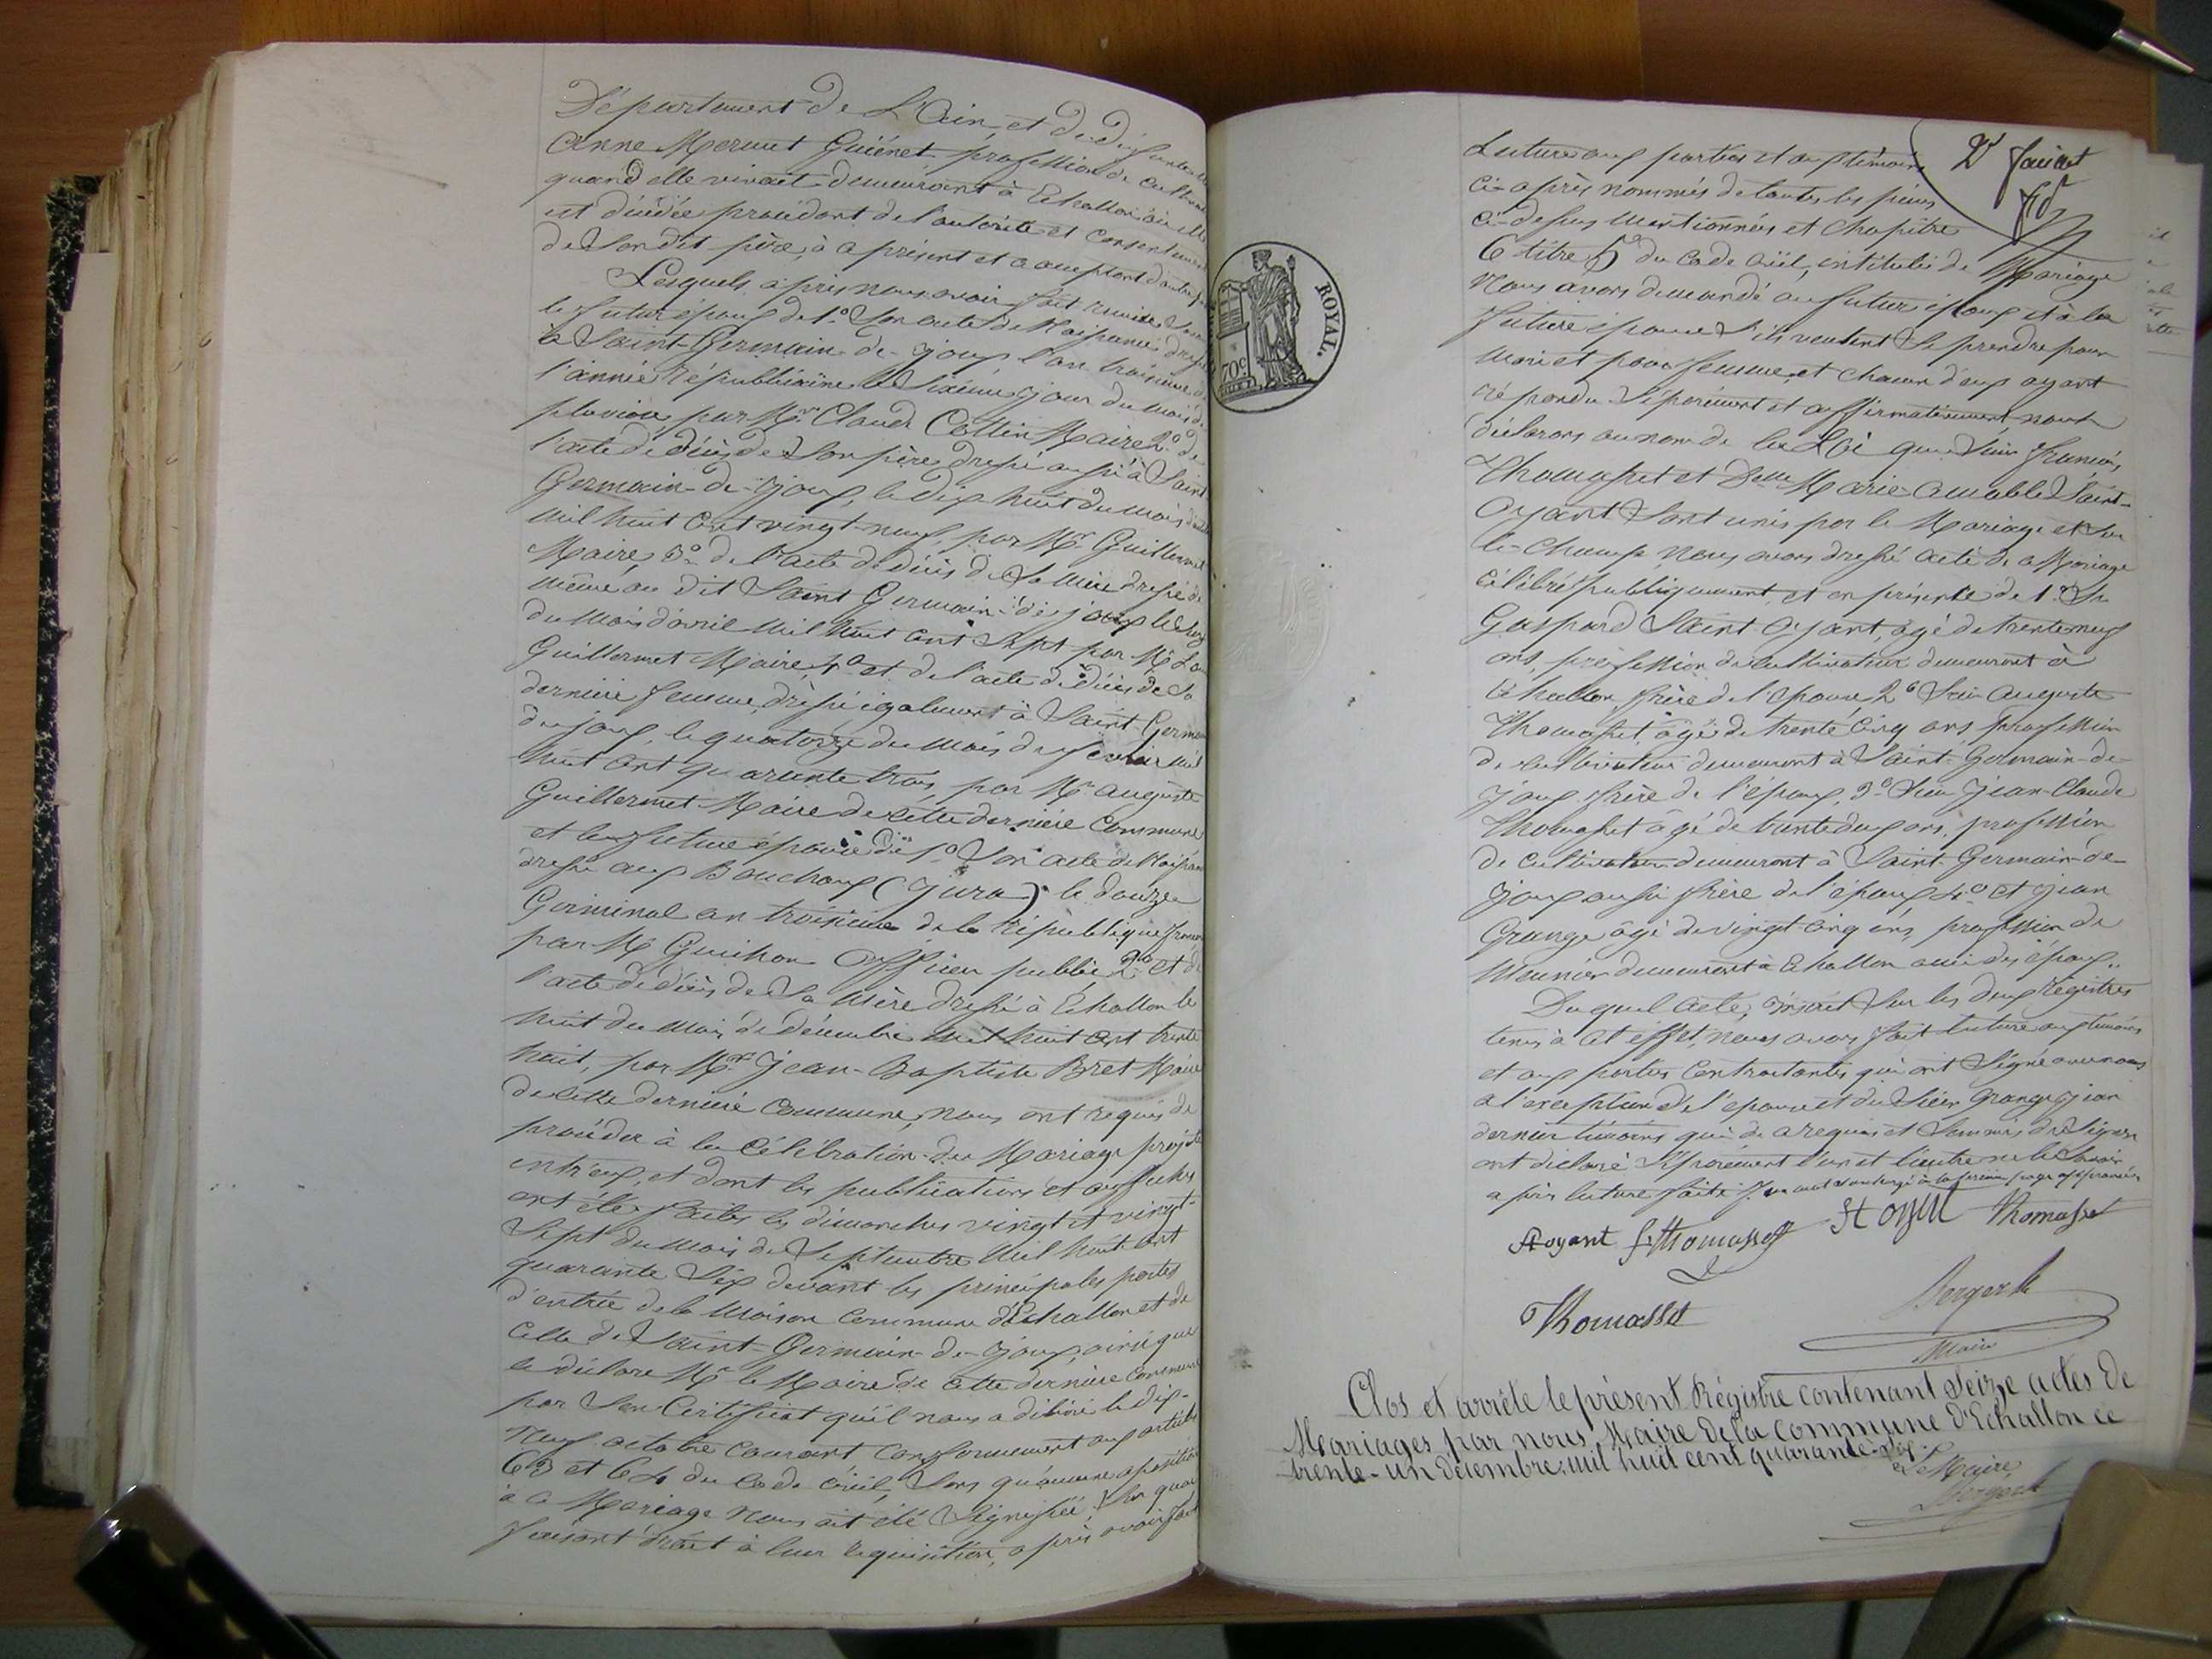 Département de L'Ain, et de défunte
Anne Mermet Guienet profession de cultiv
quand elle vivait demeurant à Echallon où elle
est décédée procédant de l'autorité et consentement
de Son dit père, à ce présent et acceptant d'autre p
Lesquels après nous avoir fait remise, Savoir
le futur époux de 1° Son acte de Naissance dressé
à Saint-Germain-de-joux l'an troisième de
l'année républicaine le Sixième jour du mois de
pluviose, par Mr Claude Collin Maire 2° de
l'acte de décès de Son père dressé aussi à Saint
Germain-de-Joux, le dix huit du mois d
mil huit cent vingt-neuf, par Mr Guillermet
Maire, 3° de l'acte de décès de Sa mère dressé de
même au dit Saint Germain-de-joux le
du mois d'avril mil huit cent Sept par Mr
Guillermet Maire, 4° et de l'acte de décès de Sa
dernière femme, dressé également à Saint-Germain
de joux, le quatorze du mois de février mil
huit cent quarante trois, par Mr auguste
Guillermet Maire de cette dernière Commune
et la future épouse de 1° Son acte de Naissance
dressé aux Bouchoux (Jura) le douze
Germinal an troisième de la république
par Mr Guichon Officier public, 2° et de
l'acte de décès de Sa Mère dressé à Echallon le
huit du mois de décembre mil huit cent trente
huit, par Mr Jean-Baptiste Bret Maire
de cette dernière commune, nous ont requis de
procéder à la Célébration du Mariage projeté
entr'eux, et dont les publications et affiches
ont été faites les dimanches vingt et vingt-
Sept du mois de Septembre mil huit cent
quarante Six devant les principales portes
d'entrée de la Maison Commune d'Echallon et de
Celle de Saint-Germain-de-Joux, ainsi que
le déclare Mr le Maire de cette dernière Commune
par Son Certificat qu'il nous a délivré le dix-
Neuf octobre Courant Conformément aux articles
63 et 64 du Code Civil, Sans qu'aucune opposition
à ce Mariage nous ait été Signifiée; Sur quoi
faisant droit à leur réquisition, après avoir fait
ROYAL.
70c
Lecture aux parties et aux témoins
Ci-après nommés de toutes les pièces
ci-dessus mentionnées et chapitre
6 titre 5° du Code Civil, intitulé du Mariage
Nous avons demandé au futur époux et à la
future épouse S'ils veulent Se prendre pour
Mari et pour femme, et chacun d'eux ayant
répondu Séparément et affirmativement, nous
déclarons au nom de la Loi que Sieur François
Thomasset et Delle Marie-Amable Saint-
Oyant Sont unis par le Mariage et Sur
le-champ nous avons dressé acte de ce Mariage
Célébré publiquement, et en présence de 1° Sr
Gaspard Saint-Oyant, âgé de trente neuf
ans, profession de cultivateur demeurant à
Echallon, frère de l'épouse, 2° Sieur Auguste
Thomasset, âgé de trente Cinq ans, profession
de cultivateur demeurant à Saint-Germain-de-
Joux frère de l'époux, 3° Sieur Jean-Claude
Thomasset âgé de trente deux ans, profession
de Cultivateur demeurant à Saint-Germain-de-
Joux aussi frère de l'époux 4° et Jean
Grange âgé de vingt-cinq ans, profession de
Meunier demeurant à Echallon ami des époux.
Du quel acte, inscrit Sur les deux registres
tenus à cet effet, nous avons fait lecture aux témoins
et aux parties Contractantes qui ont Signé avec nous
à l'exception de l'épouse et du Sieur Grange Jean
dernier témoins qui de ce requis et Sommés de Signer
ont déclaré Séparément l'un et l'autre ne le Savoir
après lecture faite, un mot surchargé à la première page approuvé.
St oyant f Thomasset St OYant Thomasset
Thomasset
Bergeret
Maire
Clos et arrêté le présent Régistre contenant Seize actes de
Mariages par nous Maire de la Commune d'Echallon ce
trente-un décembre, mil huit cent quarante-six.
Le Maire,
Bergeret